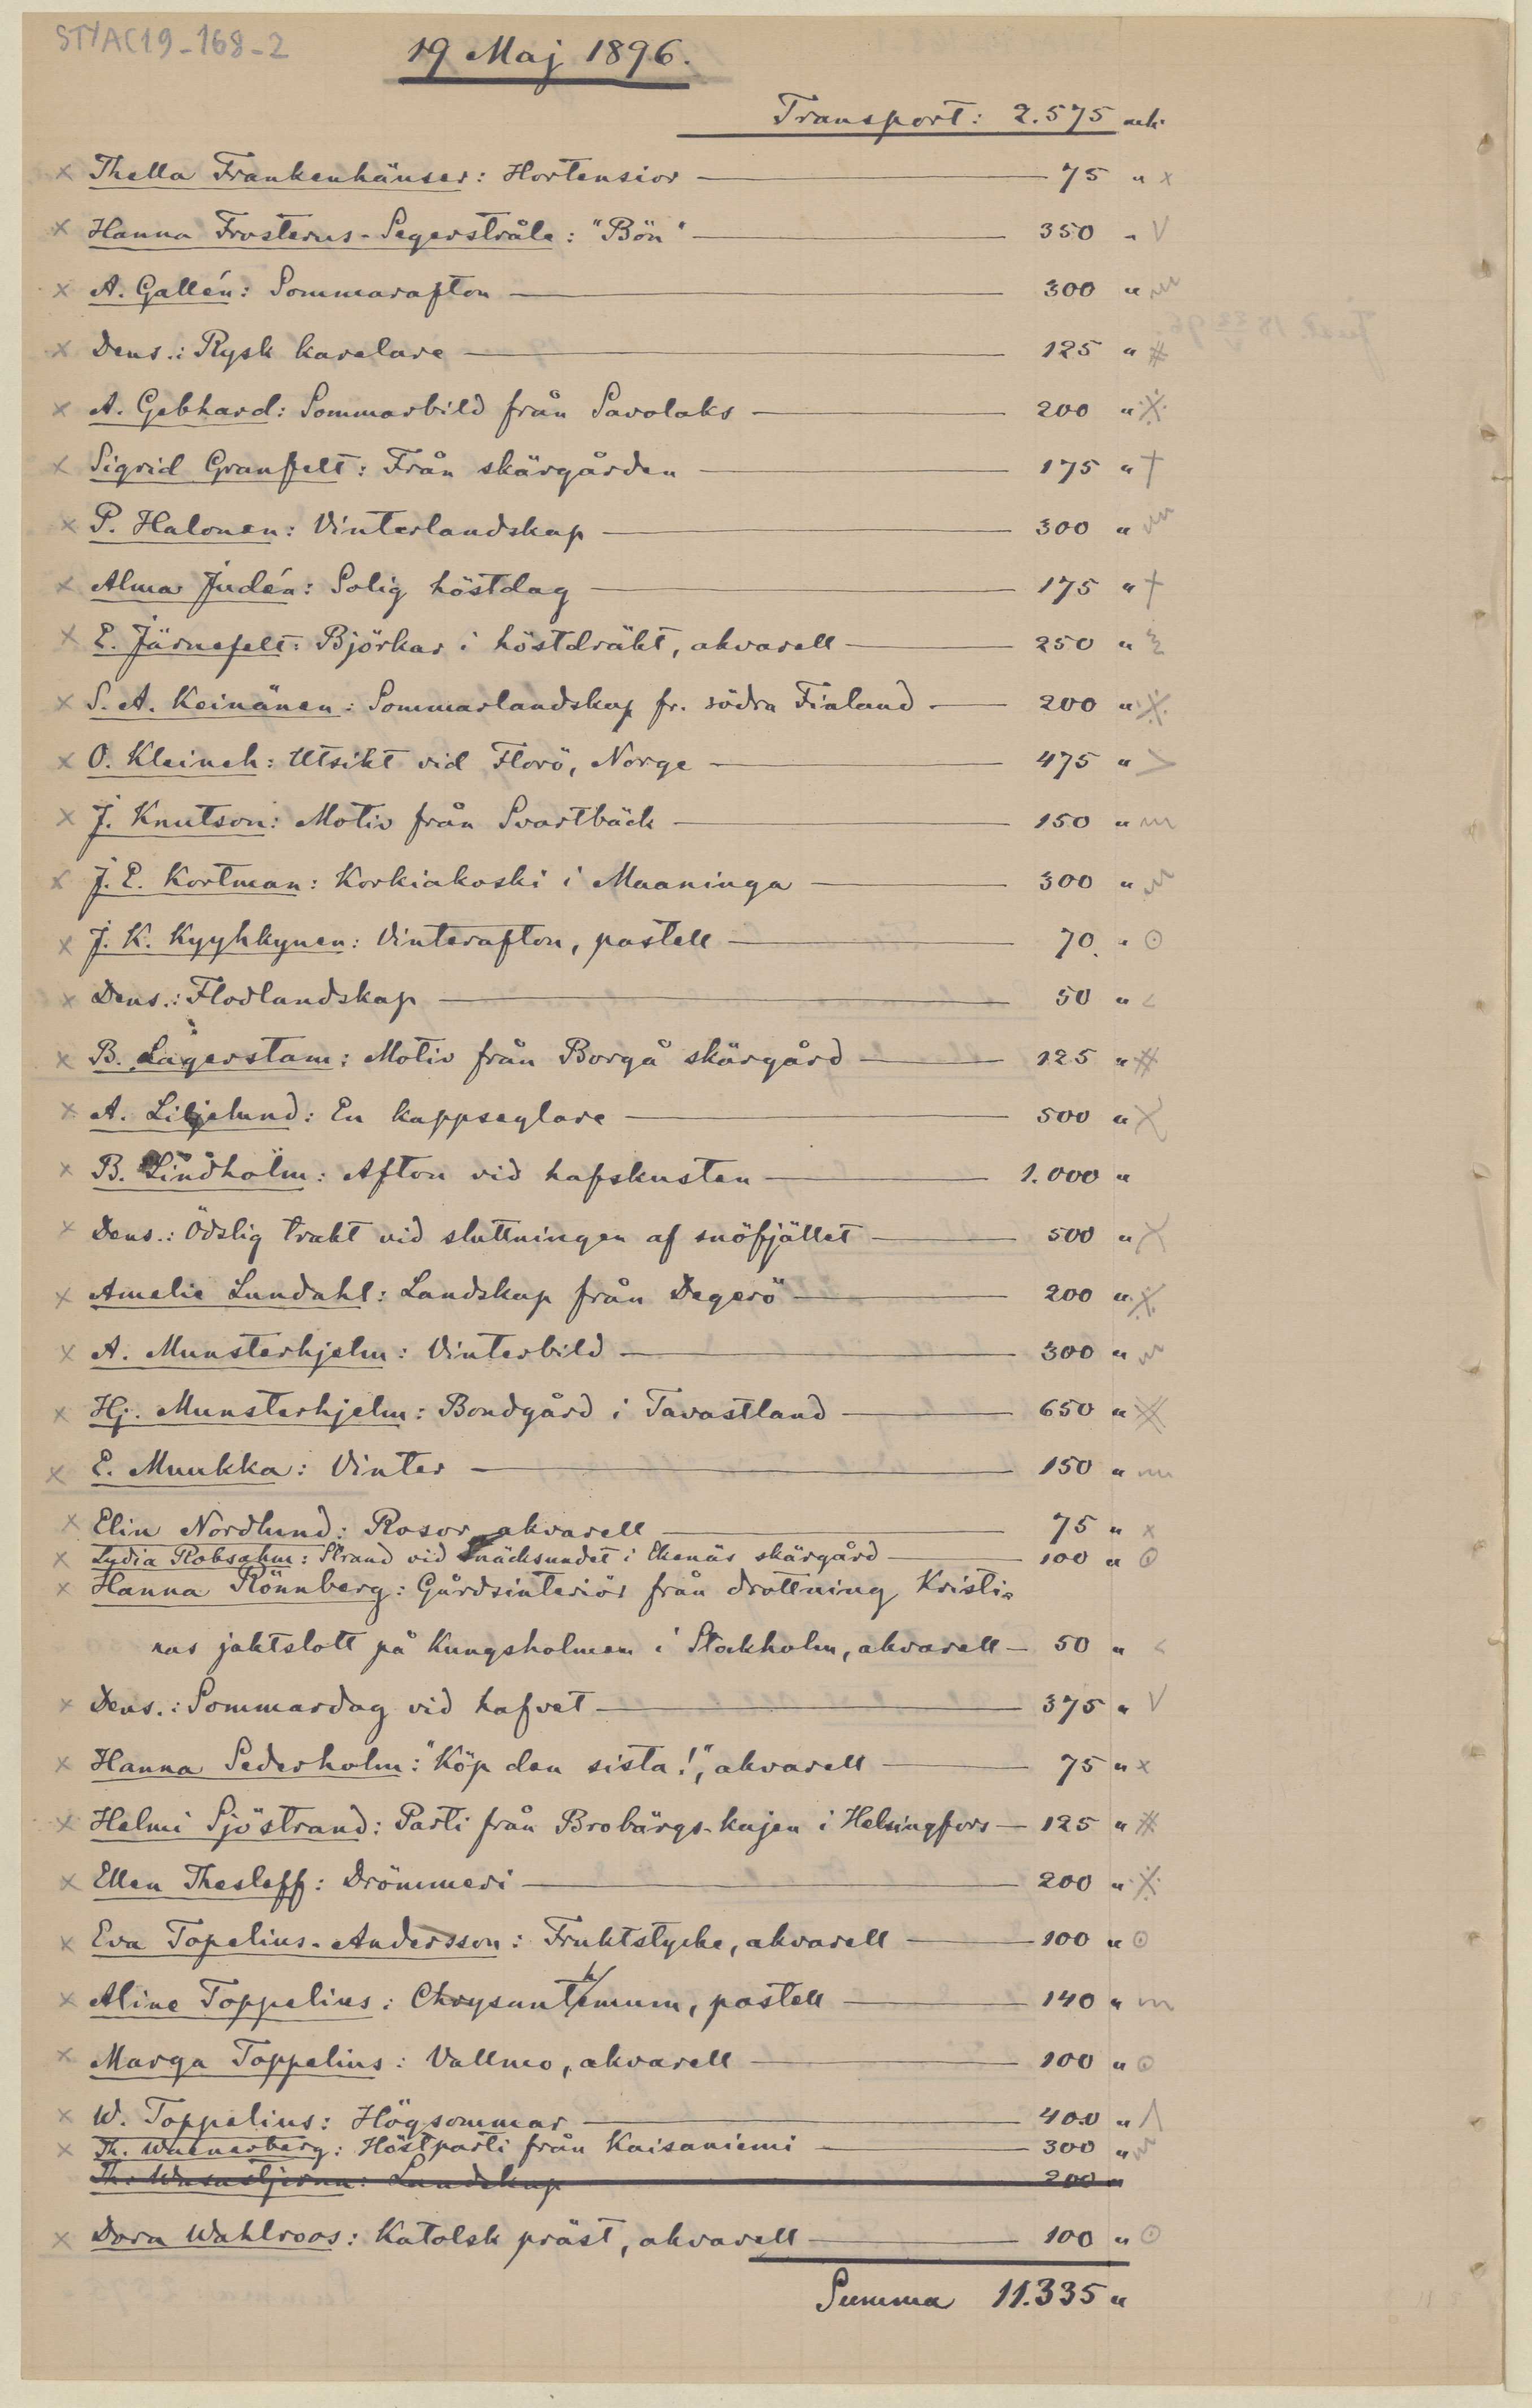 STYAC19-168-2
19 Maj 1896.
Transport: 2.575 mk
x Thella Frankenhäuser: Hortensior — 75 " x
x Hanna Frosterus-Segerstråle: "Bön" — 350 "
x A. Gallén: Sommarafton — 300 "
x Dens.: Rysk karelare — 125 " #
x A. Gebhard: Sommarbild från Savolaks — 200 " ※
x Sigrid Granfelt: Från skärgården — 175 " †
x P. Halonen: Vinterlandskap — 300 "
x Alma Judén: Solig höstdag — 175 " †
x E. Järnefelt: Björkar i höstdräkt, akvarell — 250 "
x S. A. Keinänen: Sommarlandskap fr. södra Finland — 200 " ※
x O. Kleineh: Utsikt vid Florö, Norge — 475 " >
x J. Knutson: Motiv från Svartbäck — 150 "
x J. E. Kortman: Korkiakoski i Maaninga — 300 "
x J. K. Kyyhkynen: Vinterafton, pastell — 70. " ⊙
x Dens.: Flodlandskap — 50 " <
x B. Lagerstam: Motiv från Borgå skärgård — 125 " #
x A. Liljelund: En kappseglare — 500 " X
x B. Lindholm: Afton vid hafskusten — 1.000 "
x Dens.: Ödslig trakt vid sluttningen af snöfjället — 500 " X
x Amelie Lundahl: Landskap från Degerö — 200 " ※
x A. Munsterhjelm: Vinterbild — 300 "
x Hj. Munsterhjelm: Bondgård i Tavastland — 650 "
x E. Muukka: Vinter — 150 "
x Elin Nordlund: Rosor, akvarell — 75 " x
x Lydia Robsahm: Strand vid Snäcksundet i Ekenäs skärgård — 100 " ⊙
x Hanna Rönnberg: Gårdsinteriör från drottning Kristi-
nas jaktslott på Kungsholmen i Stockholm, akvarell — 50 " <
x Dens.: Sommardag vid hafvet — 375 " V
x Hanna Sederholm: "Köp den sista!", akvarell — 75 " x
x Helmi Sjöstrand: Parti från Brobärgs-kajen i Helsingfors — 125 " #
x Ellen Thesleff: Drömmeri — 200 " ※
x Eva Topelius-Andersson: Fruktstycke, akvarell — 100 " ⊙
x Aline Toppelius: Chrysanthemum, pastell — 140 "
x Marga Toppelius: Vallmo, akvarell — 100 " ⊙
x W. Toppelius: Högsommar — 400 " Λ
x Th. Waenerberg: Höstparti från Kaisaniemi — 300 "
Th. Wasastjerna: Landskap 200 "
x Dora Wahlroos: Katolsk präst, akvarell — 100 " ⊙
Summa 11.335 "